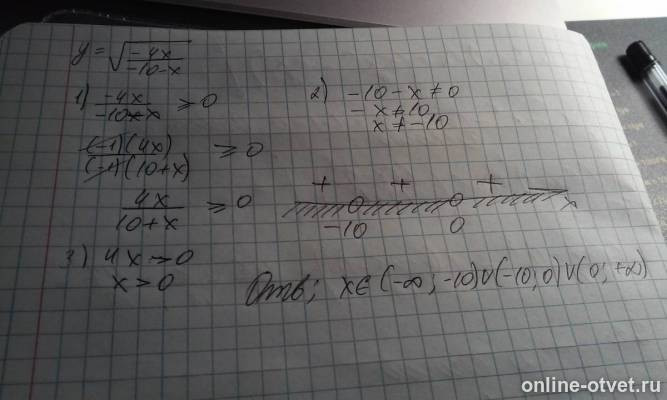 y = √(-4x / -10-x)
1) -4x / -10-x ≥ 0
(-1)(4x) / (-1)(10+x) ≥ 0
4x / 10+x ≥ 0
3) 4x > 0
x > 0
2) -10-x ≠ 0
-x ≠ 10
x ≠ -10
+ + +
-10 0 x
Отв; x∈(-∞; -10)∪(-10; 0)∪(0; +∞)
online-otvet.ru